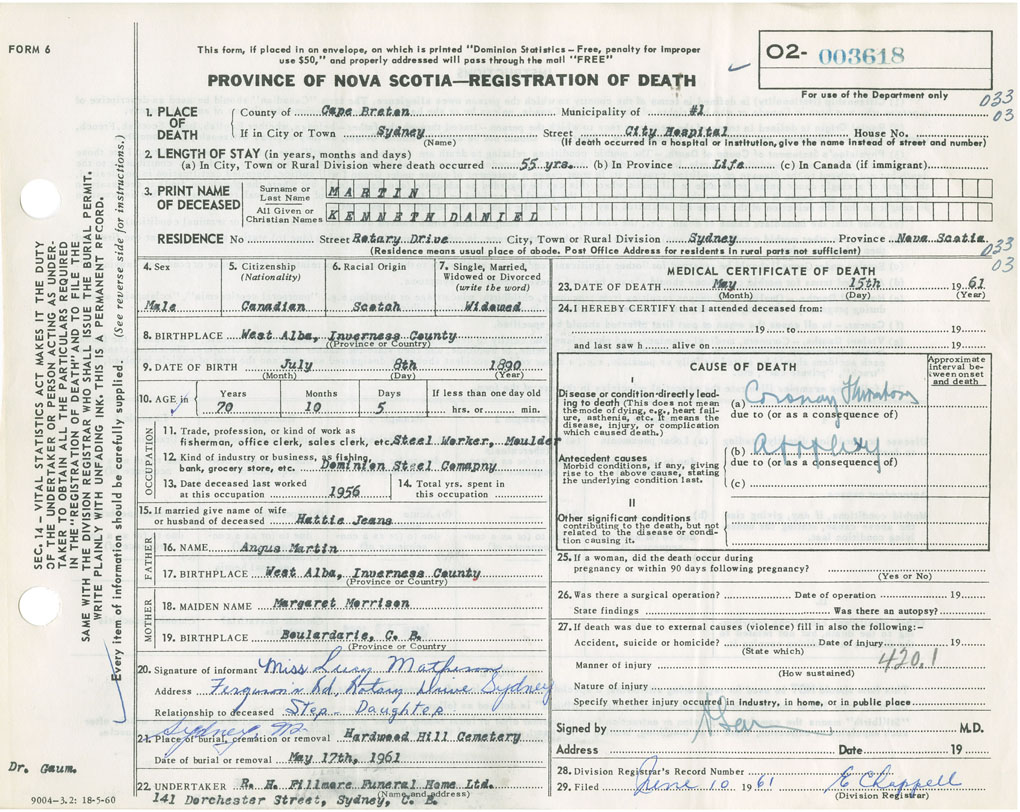 FORM 6
This form, if placed in an envelope, on which is printed "Dominion Statistics – Free, penalty for improper
use $50," and properly addressed will pass through the mail "FREE"
PROVINCE OF NOVA SCOTIA—REGISTRATION OF DEATH
O2- 003618
For use of the Department only
033
03
1. PLACE OF DEATH
County of Cape Breton Municipality of #1
If in City or Town Sydney Street City Hospital House No.
(Name) (If death occurred in a hospital or institution, give the name instead of street and number)
2. LENGTH OF STAY (in years, months and days)
(a) In City, Town or Rural Division where death occurred 55 yrs. (b) In Province Life (c) In Canada (if immigrant)
3. PRINT NAME OF DECEASED
Surname or Last Name MARTIN
All Given or Christian Names KENNETH DANIEL
RESIDENCE No Street Rotary Drive City, Town or Rural Division Sydney Province Nova Scotia
(Residence means usual place of abode. Post Office Address for residents in rural parts not sufficient)
033
03
4. Sex
Male
5. Citizenship
(Nationality)
Canadian
6. Racial Origin
Scotch
7. Single, Married,
Widowed or Divorced
(write the word)
Widowed
8. BIRTHPLACE West Alba, Inverness County
(Province or Country)
9. DATE OF BIRTH July 8th 1890
(Month) (Day) (Year)
10. AGE in
Years Months Days If less than one day old
70 10 5 hrs. or min.
OCCUPATION
11. Trade, profession, or kind of work as
fisherman, office clerk, sales clerk, etc. Steel Worker, Moulder
12. Kind of industry or business, as fishing,
bank, grocery store, etc. Dominion Steel Comapny
13. Date deceased last worked
at this occupation 1956
14. Total yrs. spent in
this occupation
15. If married give name of wife
or husband of deceased Hattie Jeans
FATHER
16. NAME Angus Martin
17. BIRTHPLACE West Alba, Inverness County
(Province or Country)
MOTHER
18. MAIDEN NAME Margaret Morrison
19. BIRTHPLACE Boulardarie, C. B.
(Province or Country)
20. Signature of informant Miss Lucy Matheson
Address Ferguson's Rd, Rotary Drive Sydney
Relationship to deceased Step-Daughter
Sydney
21. Place of burial, cremation or removal Hardwood Hill Cemetery
Date of burial or removal May 17th, 1961
22. UNDERTAKER R. H. Fillmore Funeral Home Ltd.
(Name and address)
141 Dorchester Street, Sydney, C. B.
MEDICAL CERTIFICATE OF DEATH
23. DATE OF DEATH May 15th 1961
(Month) (Day) (Year)
24. I HEREBY CERTIFY that I attended deceased from:
19 to 19
and last saw h alive on 19
CAUSE OF DEATH
Approximate
interval be-
tween onset
and death
I
Disease or condition directly lead-
ing to death (This does not mean
the mode of dying, e.g., heart fail-
ure, asthenia, etc. It means the
disease, injury, or complication
which caused death.)
(a) Coronary Thrombosis
due to (or as a consequence of)
Antecedent causes
Morbid conditions, if any, giving
rise to the above cause, stating
the underlying condition last.
(b) Apoplexy
due to (or as a consequence of)
(c)
II
Other significant conditions
contributing to the death, but not
related to the disease or condi-
tion causing it.
25. If a woman, did the death occur during
pregnancy or within 90 days following pregnancy?
(Yes or No)
26. Was there a surgical operation? Date of operation 19
State findings Was there an autopsy?
27. If death was due to external causes (violence) fill in also the following:–
Accident, suicide or homicide? Date of injury 19
(State which)
420.1
Manner of injury
(How sustained)
Nature of injury
Specify whether injury occurred in industry, in home, or in public place
Signed by M.D.
Address Date 19
28. Division Registrar's Record Number
29. Filed June 10 1961 E Chappell
(Division Registrar)
SEC. 14 – VITAL STATISTICS ACT MAKES IT THE DUTY
OF THE UNDERTAKER OR PERSON ACTING AS UNDER-
TAKER TO OBTAIN ALL THE PARTICULARS REQUIRED
IN THE "REGISTRATION OF DEATH" AND TO FILE THE
SAME WITH THE DIVISION REGISTRAR WHO SHALL ISSUE THE BURIAL PERMIT.
WRITE PLAINLY WITH UNFADING INK. THIS IS A PERMANENT RECORD.
Every item of information should be carefully supplied. (See reverse side for instructions.)
Dr. Gaum.
9004–3.2: 18-5-60